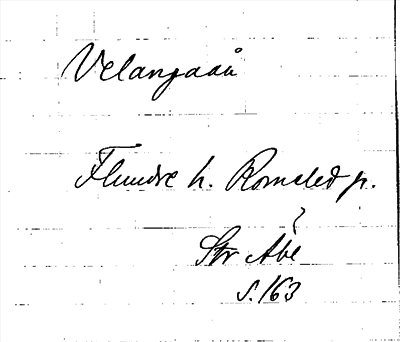 Velangaån
Flundre h. Romeled p.
Str Åbe
s. 163